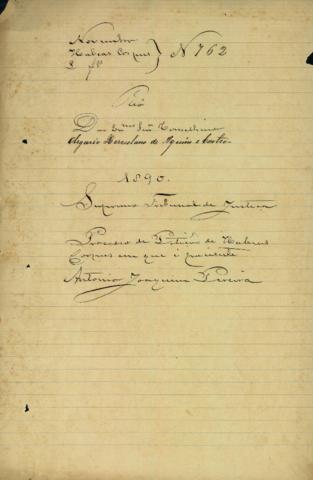 Novembro
Habeas Corpus } N 762
Rio
Do Exmo Snr Conselheiro
Olegario Herculano de Aquino e Castro
1890.
Supremo Tribunal de Justiça
Processo de Petição de Habeas
Corpus em que é paciente
Antonio Joaquim Pereira